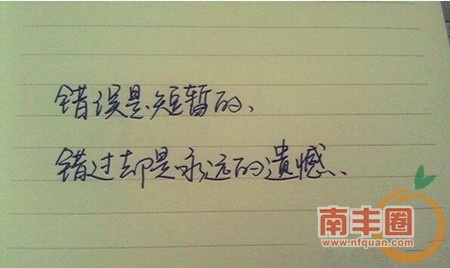 错误是短暂的、
错过却是永远的遗憾、
南丰圈
www.nfquan.com